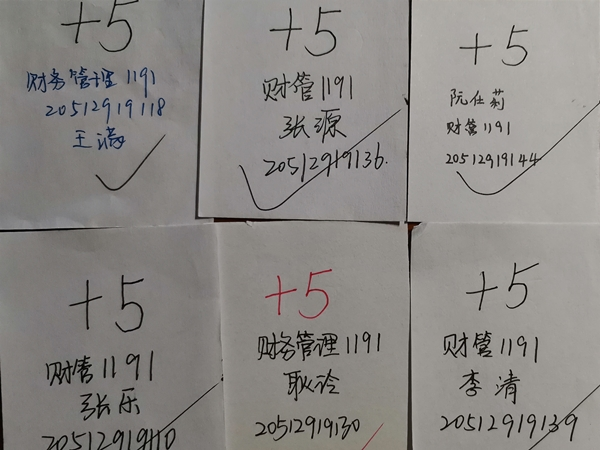 +5
财务管理1191
20512919118
王濛
+5
财管1191
张源
20512919136.
+5
阮仕莉
财管1191
20512919144
+5
财管1191
张乐
20512919110
+5
财务管理1191
耿诠
20512919130
+5
财管1191
李清
20512919139